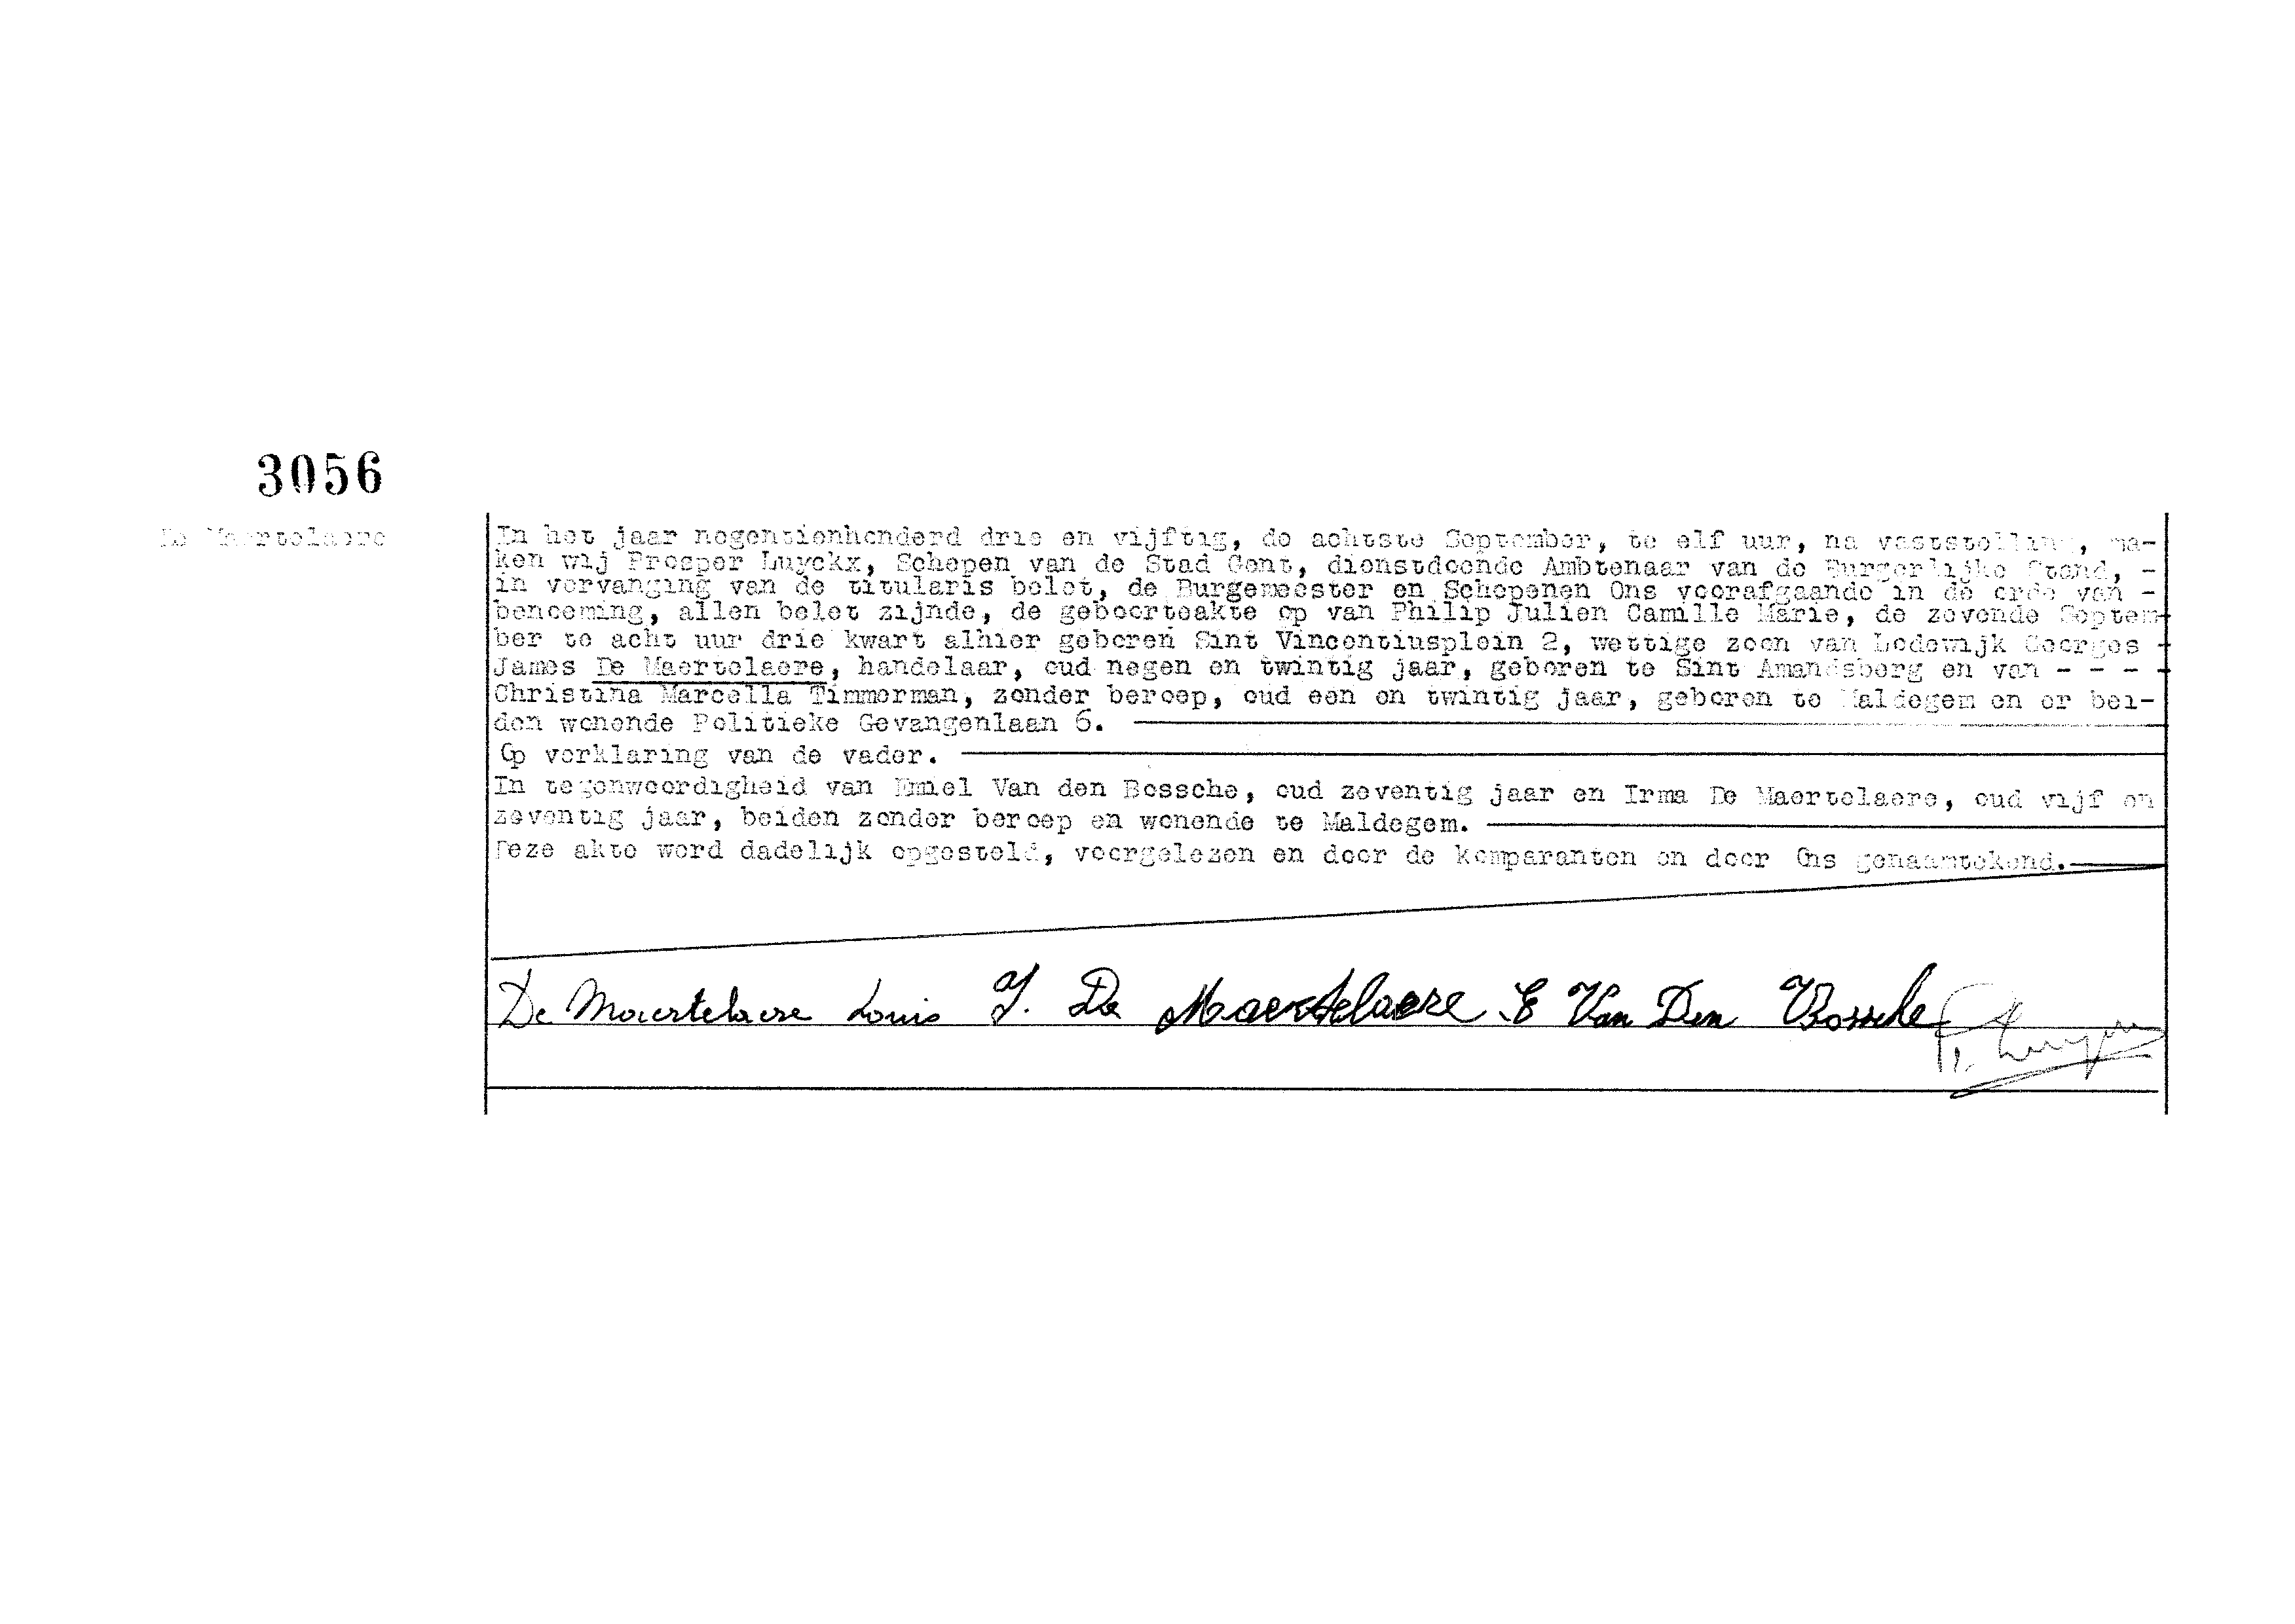 3056
De Maertelaere
In het jaar negentienhonderd drie en vijftig, de achtste September, te elf uur, na vaststelling, ma-
ken wij Prosper Luyckx, Schepen van de Stad Gent, dienstdoende Ambtenaar van de Burgerlijke Stand, -
in vervanging van de titularis belet, de Burgemeester en Schepenen Ons voorafgaande in de orde van -
benoeming, allen belet zijnde, de geboorteakte op van Philip Julien Camille Marie, de zevende Septem-
ber te acht uur drie kwart alhier geboren Sint Vincentiusplein 2, wettige zoon van Lodewijk Georges -
James De Maertelaere, handelaar, oud negen en twintig jaar, geboren te Sint Amandsberg en van - - - -
Christina Marcella Timmerman, zonder beroep, oud een en twintig jaar, geboren te Maldegem en er bei-
den wonende Politieke Gevangenlaan 6.
Op verklaring van de vader.
In tegenwoordigheid van Emiel Van den Bossche, oud zeventig jaar en Irma De Maertelaere, oud vijf en
zeventig jaar, beiden zonder beroep en wonende te Maldegem.
Deze akte word dadelijk opgesteld, voorgelezen en door de komparanten en door Ons genaamtekend.
De Maertelaere Louis I. De Maertelaere E Van Den Bossche